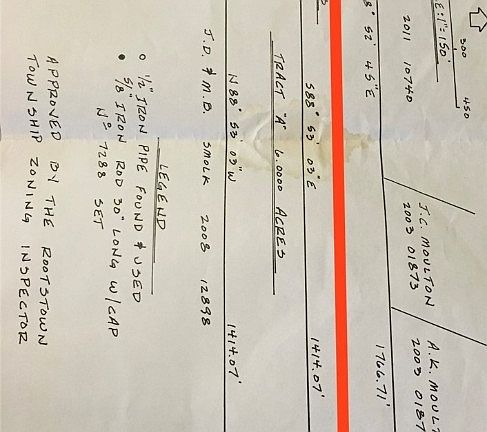 300 450
E: 1" = 150'
2011 10740
J.C. MOULTON
2003 01873
A.K. MOULT
2003 0187
8° 52' 45" E
1766.71'
S88° 53' 03" E
1414.07'
TRACT "A" 6.0000 ACRES
N88° 53' 03" W
1414.07'
J.D. & M.B. SMOLK 2003 12898
LEGEND
○ 1/2" IRON PIPE FOUND & USED
● 5/8 IRON ROD 30" LONG W/CAP
Nº 7288 SET
APPROVED BY THE ROOTSTOWN
TOWNSHIP ZONING INSPECTOR